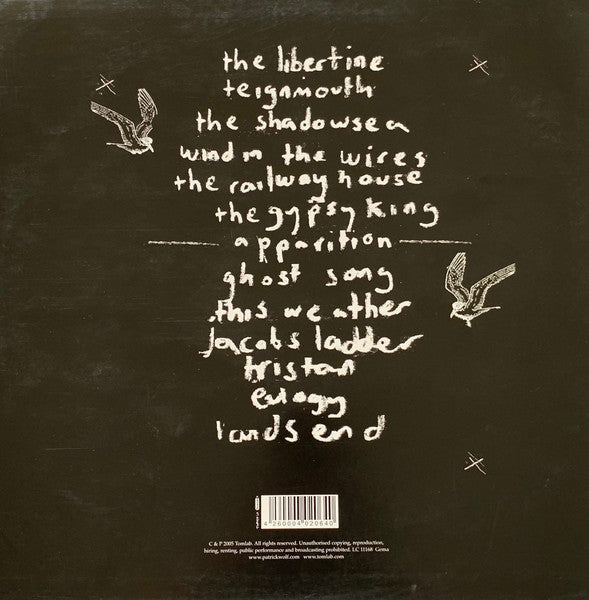 the libertine
teignmouth
the shadowsea
wind in the wires
the railway house
the gypsy king
apparition
ghost song
this weather
Jacobs ladder
tristan
eulogy
lands end
4 260004 020640
C & P 2005 Tomlab. All rights reserved. Unauthorised copying, reproduction,
hiring, renting, public performance and broadcasting prohibited. LC 11168 Gema
www.patrickwolf.com www.tomlab.com